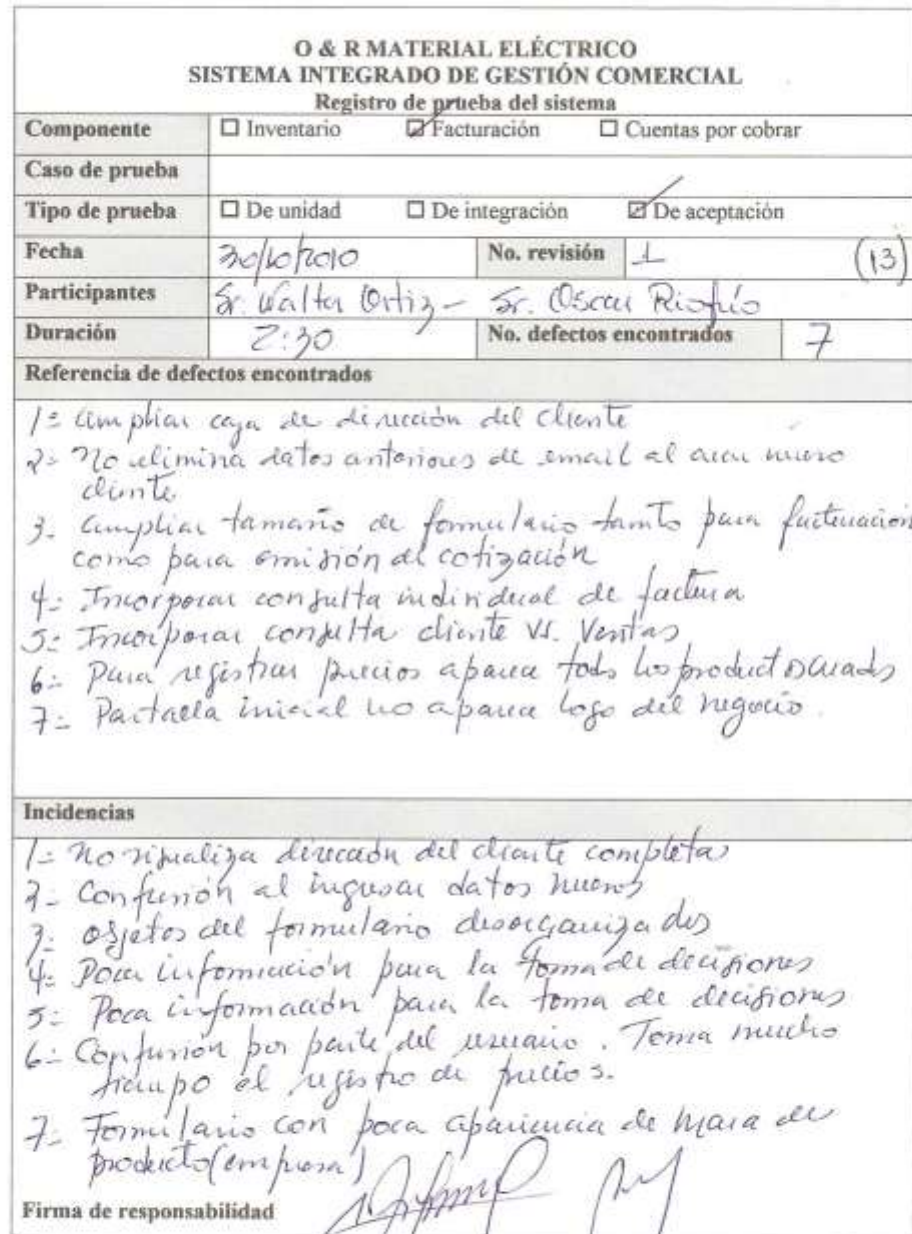 O & R MATERIAL ELÉCTRICO
SISTEMA INTEGRADO DE GESTIÓN COMERCIAL
Registro de prueba del sistema
Componente ☐ Inventario ☑ Facturación ☐ Cuentas por cobrar
Caso de prueba
Tipo de prueba ☐ De unidad ☐ De integración ☑ De aceptación
Fecha 30/10/2010 No. revisión 1 (13)
Participantes Sr. Walter Ortiz - Sr. Oscar Riofrío
Duración 2:30 No. defectos encontrados 7
Referencia de defectos encontrados
1- Ampliar caja de dirección del cliente
2- No elimina datos anteriores de email al crear nuevo
cliente
3- Ampliar tamaño de formulario tanto para facturación
como para emisión de cotización
4- Incorporar consulta individual de factura
5- Incorporar consulta cliente vs. Ventas
6- Para registrar precios aparece todos los productos creados
7- Pantalla inicial no aparece logo del negocio.
Incidencias
1- No visualiza dirección del cliente completas
2- Confusión al ingresar datos nuevos
3- Objetos del formulario desorganizados
4- Poca información para la toma de decisiones
5- Poca información para la toma de decisiones
6- Confusión por parte del usuario. Toma mucho
tiempo el registro de precios.
7- Formulario con poca apariencia de marca de
producto (empresa)
Firma de responsabilidad